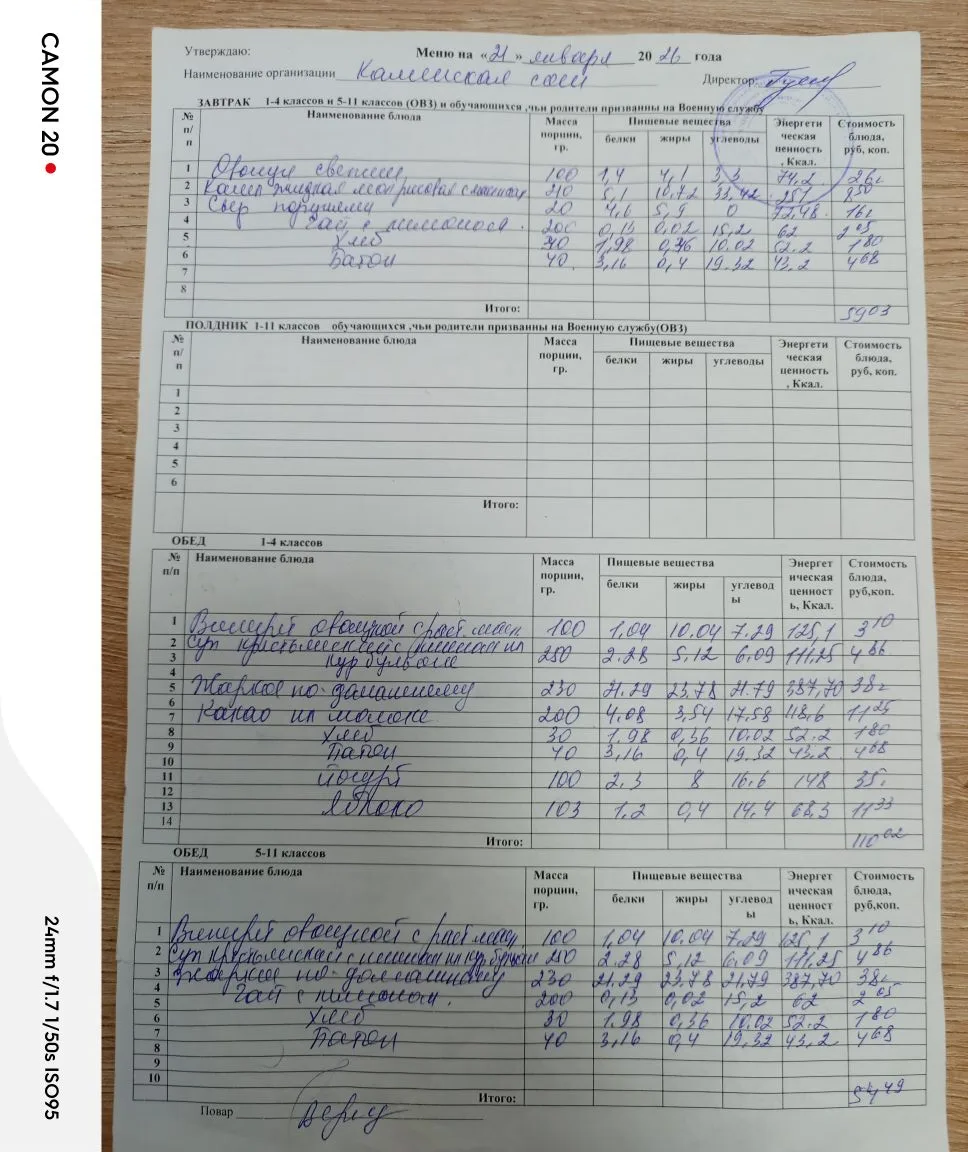 CAMON 20
24mm f/1.7 1/50s ISO95
Утверждаю: Меню на «21» января 2026 года
Наименование организации Каменская сош Директор:
ЗАВТРАК 1-4 классов и 5-11 классов (ОВЗ) и обучающихся ,чьи родители призванны на Военную службу
№ п/п Наименование блюда Масса порции, гр. Пищевые вещества Энергетическая ценность, Ккал. Стоимость блюда, руб, коп.
белки жиры углеводы
1 Овощи свежие 100 1,4 4,1 3,3 74,2 26
2 Каша жидкая мол рисовая с маслом 210 5,1 10,72 33,42 251 8 50
3 Сыр порциями 20 4,6 5,9 0 72,48 16
4 Чай с лимоном. 200 0,13 0,02 15,2 62 2 05
5 Хлеб 30 1,98 0,36 10.02 52.2 1 80
6 Батон 40. 3,16 0,4 19.32 43.2 4 68
7
8
Итого: 5903
ПОЛДНИК 1-11 классов обучающихся ,чьи родители призванны на Военную службу(ОВЗ)
№ п/п Наименование блюда Масса порции, гр. Пищевые вещества Энергетическая ценность, Ккал. Стоимость блюда, руб, коп.
белки жиры углеводы
1
2
3
4
5
6
Итого:
ОБЕД 1-4 классов
№ п/п Наименование блюда Масса порции, гр. Пищевые вещества Энергетическая ценность, Ккал. Стоимость блюда, руб,коп.
белки жиры углеводы
1 Винегрет овощной с раст. масл 100 1,04 10.04 7.29 125,1 3 10
2 Суп крестьянский с пшеном на 250 2.28 5,12 6.09 111,25 4 86
3 кур бульоне
4
5 Жаркое по-домашнему 230 21.29 23,78 21.79 387,70 38
6
7 Какао на молоке 200 4,08 3,54 17,58 118,6 11 25
8 Хлеб 30 1.98 0,36 10.02 52.2 1 80
9 Батон 40 3,16 0,4 19.32 43,2 4 68
10
11 йогурт 100 2.3 8 16.6 148 35
12
13 Яблоко 103 1,2 0,4 14,4 68,3 11 33
14
Итого: 110 02
ОБЕД 5-11 классов
№ п/п Наименование блюда Масса порции, гр. Пищевые вещества Энергетическая ценность, Ккал. Стоимость блюда, руб,коп.
белки жиры углеводы
1 Винегрет овощной с раст маслом 100 1,04 10.04 7,29 125,1 3 10
2 Суп крестьянский с пшеном на кур бульоне 250 2.28 5,12 6.09 111,25 4 86
3 Жаркое по-домашнему 230 21.29 23.78 21,79 387,70 38
4 Чай с лимоном. 200 0,13 0,02 15,2 62 2 05
5
6 Хлеб 30 1.98 0,36 10.02 52.2 1 80
7 Батон 40 3,16 0,4 19,32 43,2 4 68
8
9
10
Итого: 54 49
Повар